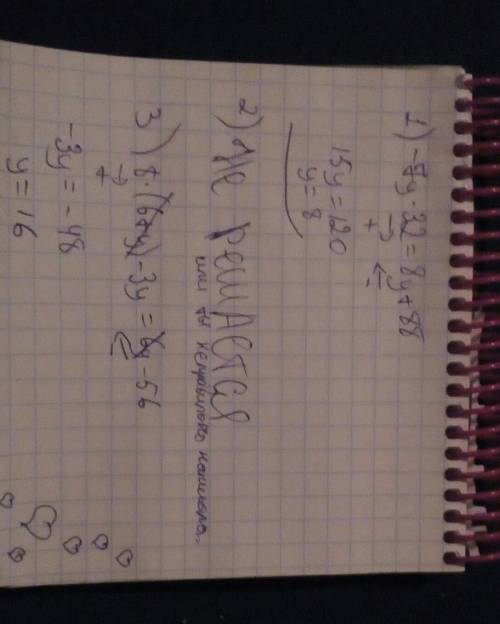 1) -7y-32 = 8y+88
15y = 120
y = 8
2) Не решается
или ты неправильно написала.
3) 8·(6+y)-3y = 6y-56
-3y = -48
y = 16